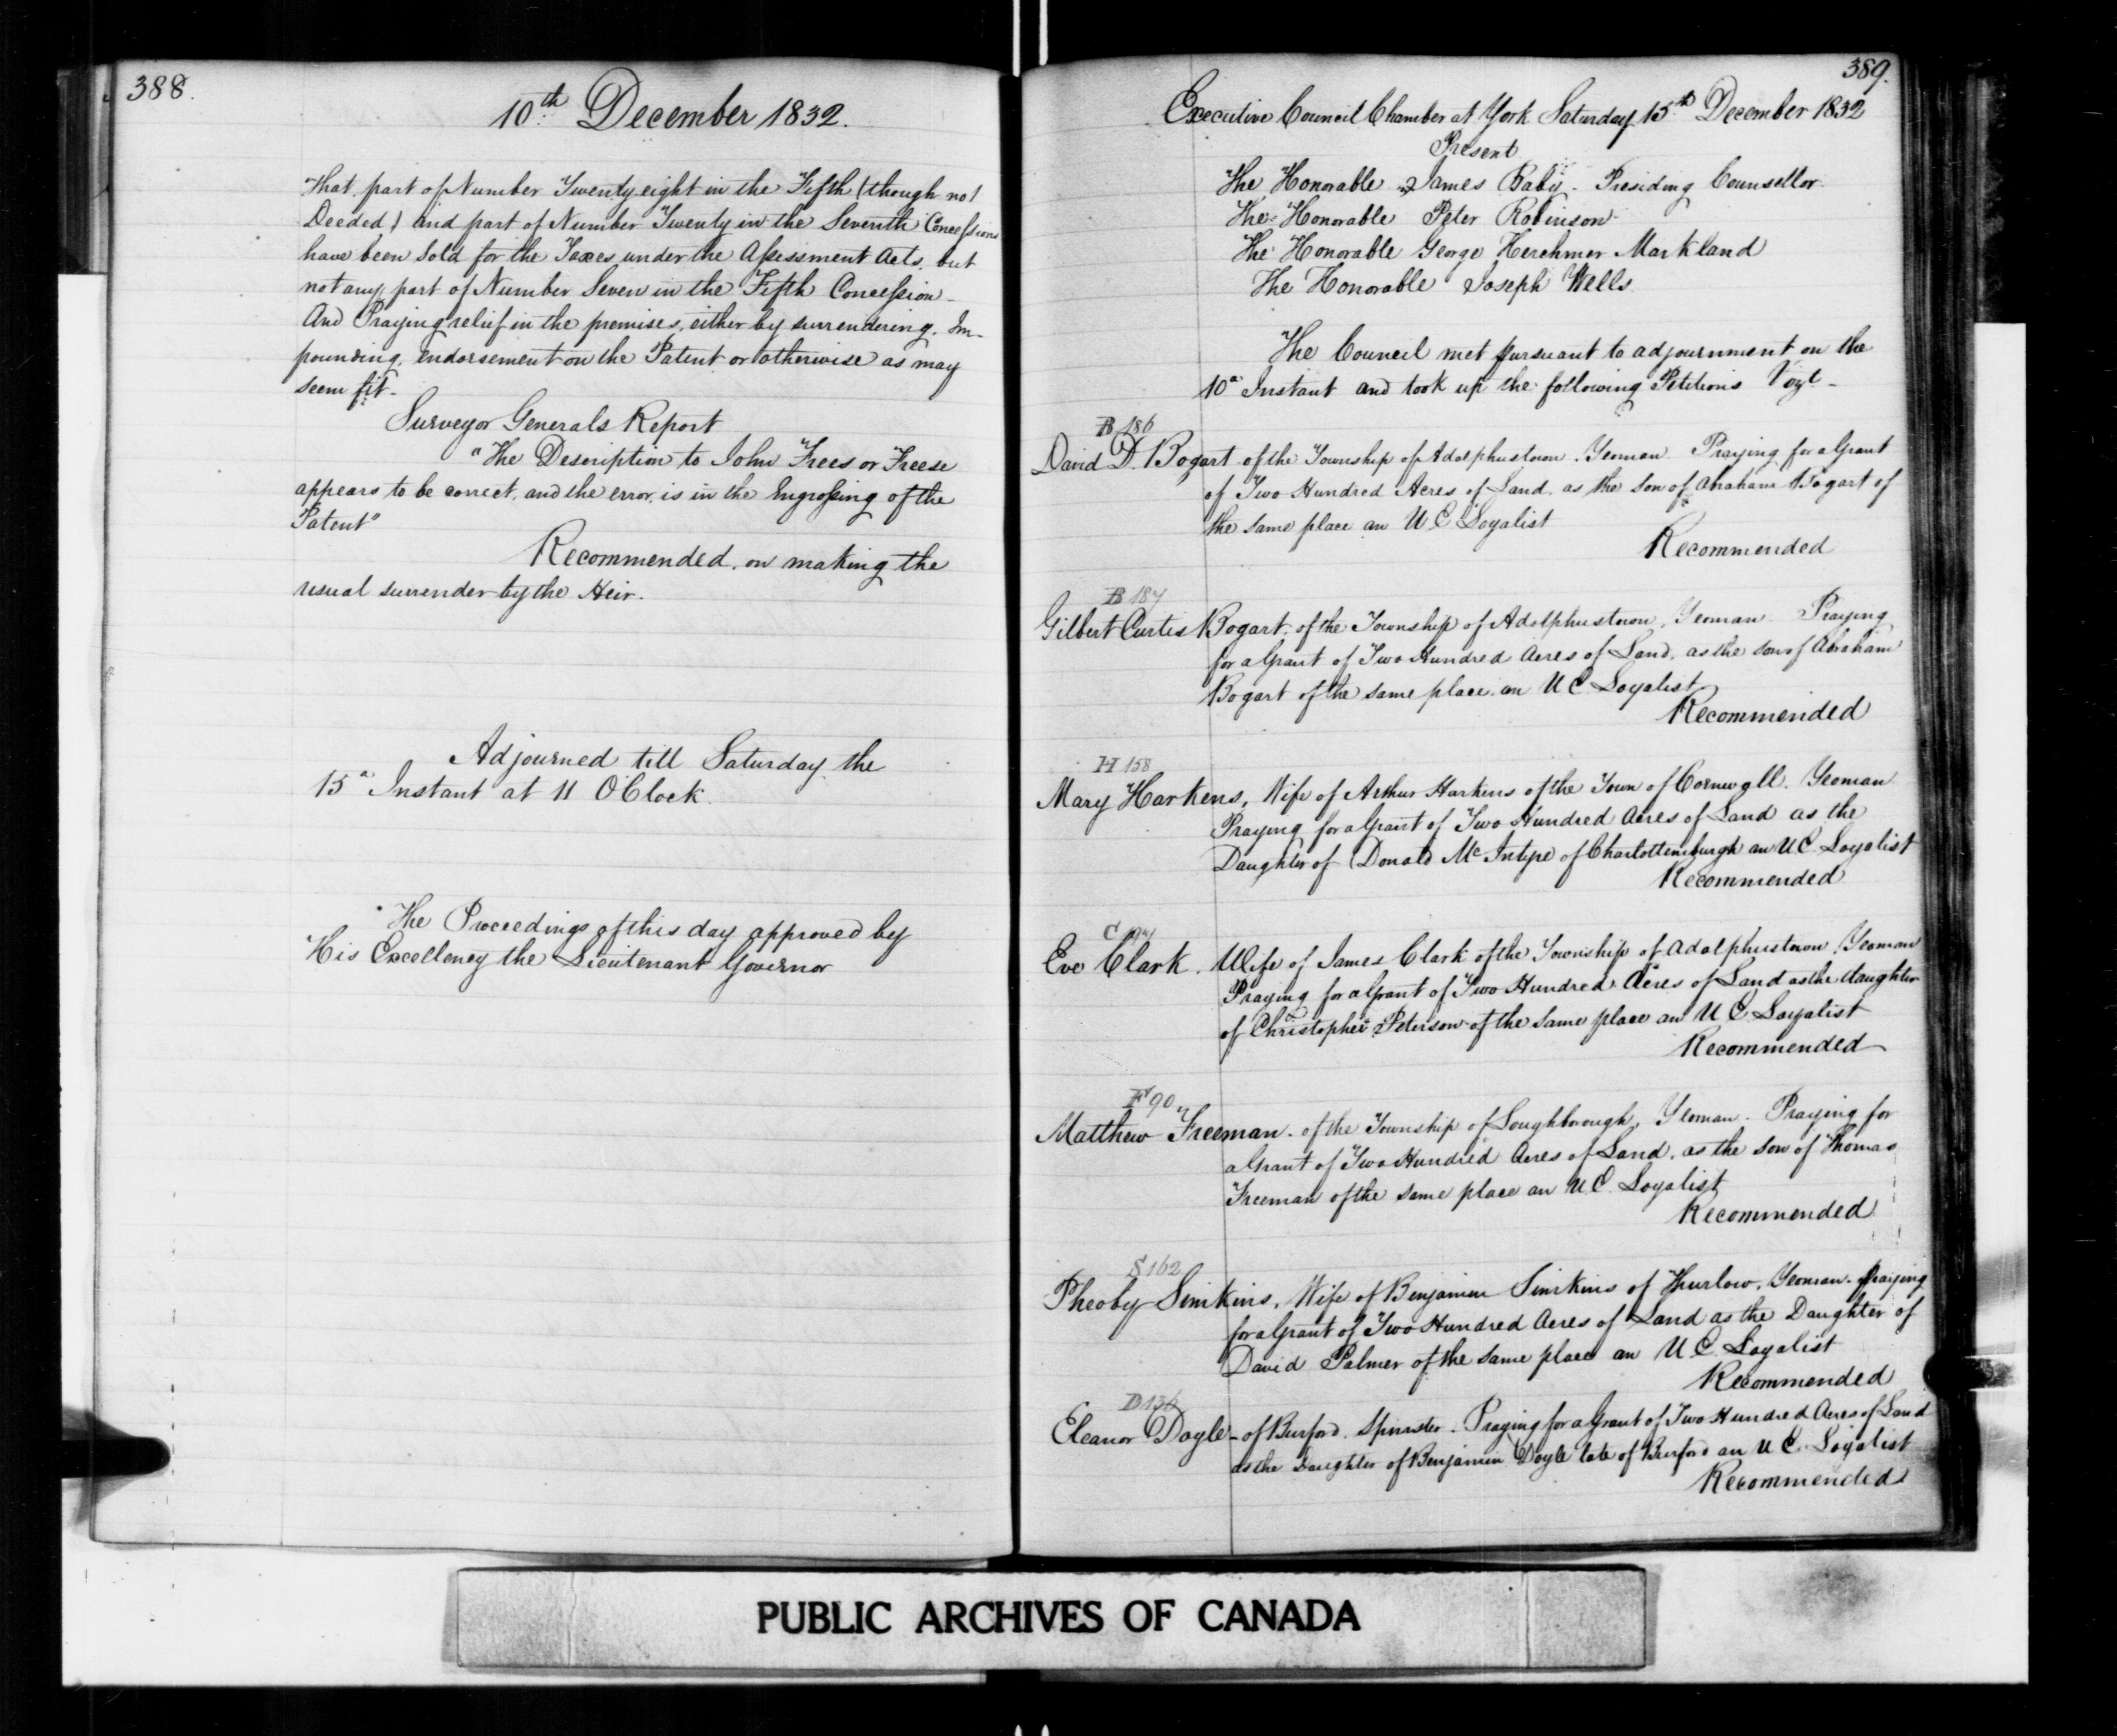 388.
10th December 1832.
that part of Number Twenty eight in the Fifth (though not
Deeded) and part of Number Twenty in the Seventh Concessions
have been Sold for the Taxes under the Assessment Acts, but
not any part of Number Seven in the Fifth Concession –
And Praying relief in the premises, either by surrendering, Im-
pounding, endorsement on the Patent or otherwise as may
seem fit.
Surveyor Generals Report
"The Description to John Frees or Freese
appears to be correct, and the error is in the Engrossing of the
Patent"
Recommended, on making the
usual surrender by the Heir.
Adjourned till Saturday the
15th Instant at 11 O'Clock.
The Proceedings of this day approved by
His Excellency the Lieutenant Governor
389.
Executive Council Chamber at York Saturday 15th December 1832
Present
The Honorable James Baby – Presiding Counsellor
The Honorable Peter Robinson
The Honorable George Herchmer Markland
The Honorable Joseph Wells
The Council met pursuant to adjournment on the
10th Instant and took up the following Petitions Vizt –
B 186
David D. Bogart of the Township of Adolphustown. Yeoman. Praying for a Grant
of Two Hundred Acres of Land, as the Son of Abraham Bogart of
the same place an U E Loyalist
Recommended
B 187
Gilbert Curtis Bogart, of the Township of Adolphustown, Yeoman. Praying
for a Grant of Two Hundred Acres of Land, as the son of Abraham
Bogart of the same place, an U E Loyalist
Recommended
H 158
Mary Harkens, Wife of Arthur Harkins of the Town of Cornwall. Yeoman
Praying for a Grant of Two Hundred Acres of Land as the
Daughter of Donald McIntyre of Charlottenburgh an U E Loyalist
Recommended
C
Eve Clark. Wife of James Clark of the Township of Adolphustown Yeoman
Praying for a Grant of Two Hundred Acres of Land as the daughter
of Christopher Peterson of the same place an U E Loyalist
Recommended
F 90
Matthew Freeman. of the Township of Loughborough, Yeoman – Praying for
a Grant of Two Hundred Acres of Land, as the son of Thomas
Freeman of the same place an U E Loyalist
Recommended
S 162
Pheoby Simkins, Wife of Benjamin Simkins of Thurlow, Yeoman – Praying
for a Grant of Two Hundred Acres of Land as the Daughter of
David Palmer of the same place an U E Loyalist
Recommended
D 136
Eleanor Doyle – of Burford. Spinster – Praying for a Grant of Two Hundred Acres of Land
as the Daughter of Benjamin Doyle late of Burford an U E Loyalist
Recommended
PUBLIC ARCHIVES OF CANADA